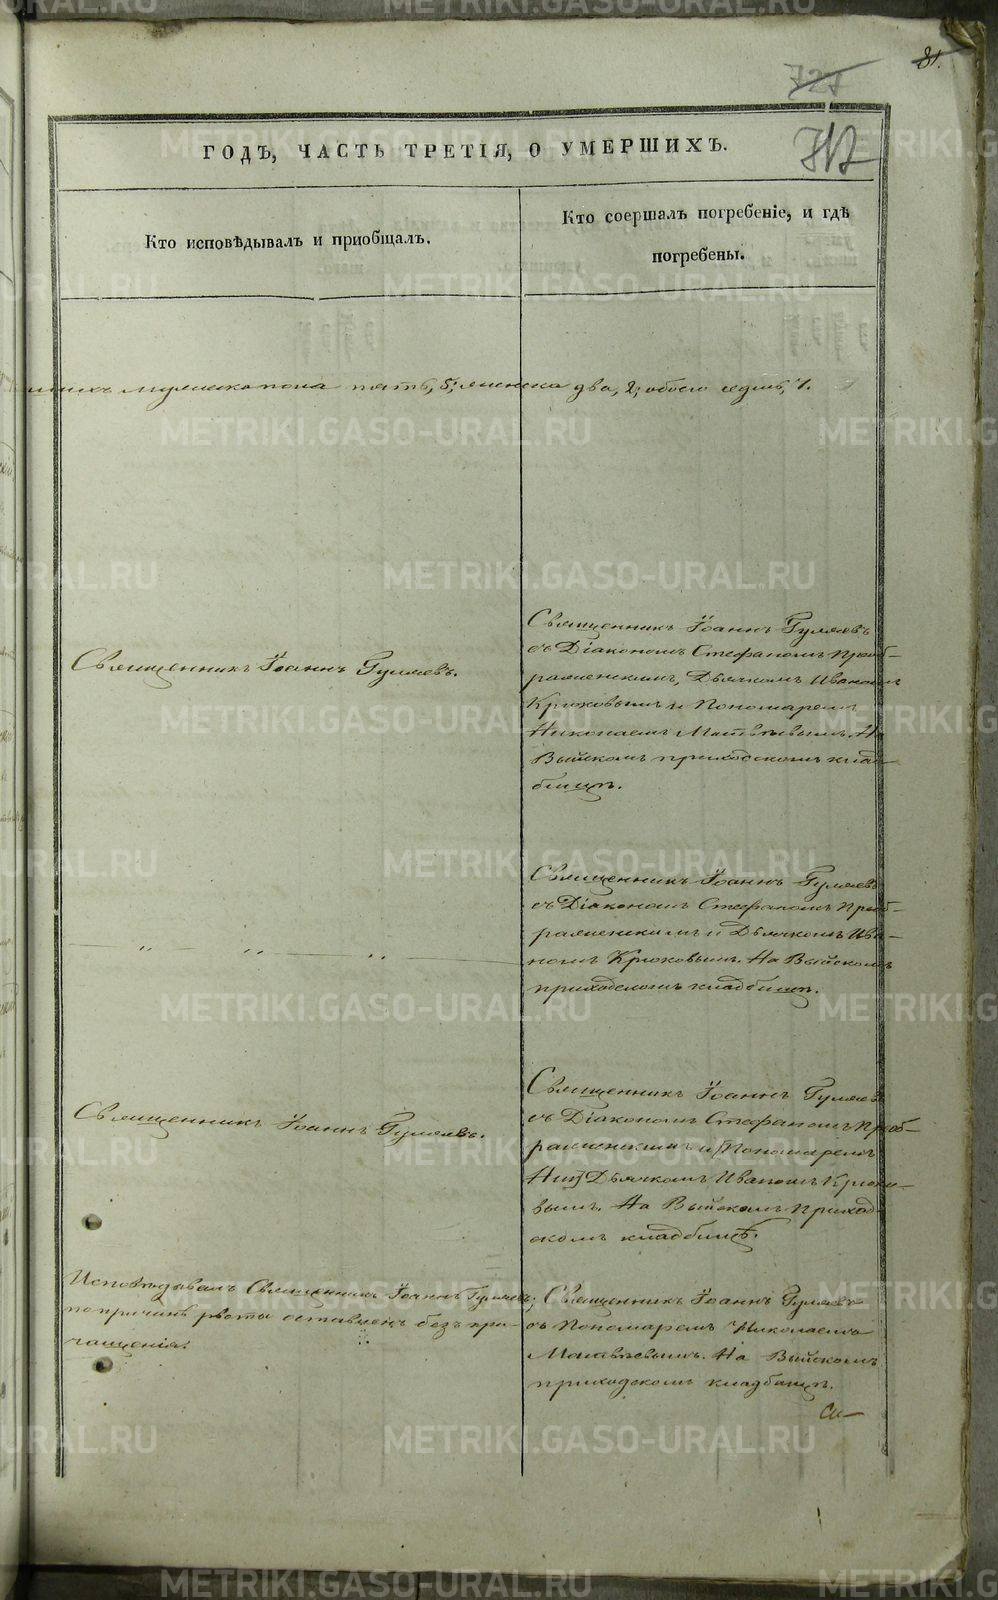 81.
727
712
ГОДЪ, ЧАСТЬ ТРЕТІЯ, О УМЕРШИХЪ.
Кто исповѣдывалъ и пріобщалъ.
Кто соершалъ погребеніе, и гдѣ
погребены.
мужеска пола пять, 5, женска два, 2, обоего седмь, 7.
Священникъ Іоаннъ Гуляевъ.
Священникъ Іоаннъ Гуляевъ
съ Діакономъ Стефаномъ Преоб-
раженскимъ, Дьячкомъ Иваномъ
Крюковымъ и Пономаремъ
Николаемъ Матвѣевымъ. На
Выйскомъ приходскомъ клад-
бищѣ.
Священникъ Іоаннъ Гуляевъ
съ Діакономъ Стефаномъ Преоб-
раженскимъ и Дьячкомъ Ива-
номъ Крюковымъ. На Выйскомъ
приходскомъ кладбищѣ.
— „ — „ — „ —
Священникъ Іоаннъ Гуляевъ.
Священникъ Іоаннъ Гуляевъ
съ Діакономъ Стефаномъ Преоб-
раженскимъ и [Пономаремъ
Ник] Дьячкомъ Иваномъ Крюко-
вымъ. На Выйскомъ Приход-
скомъ кладбищѣ.
Исповѣдывалъ Священникъ Іоаннъ Гуляевъ;
по причинѣ рвоты оставленъ безъ при-
чащенія.
Священникъ Іоаннъ Гуляевъ
съ Пономаремъ Николаемъ
Матвѣевымъ. На Выйскомъ
приходскомъ кладбищѣ.
METRIKI.GASO-URAL.RU